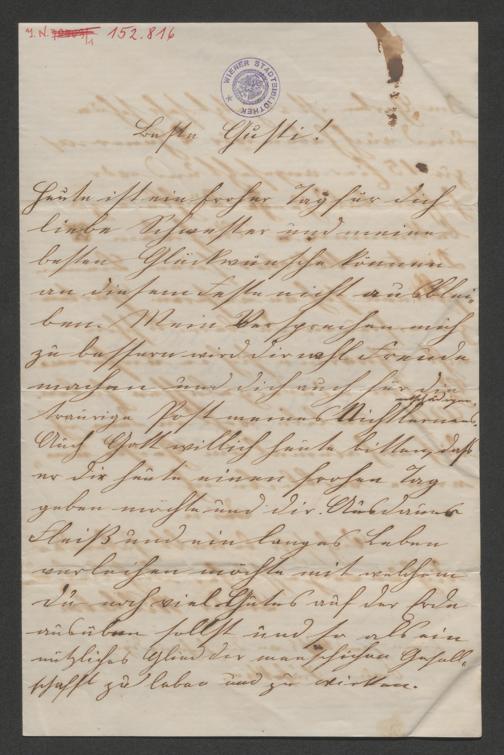 J. N. 152.816
WIENER STADTBIBLIOTHEK
Beste Gusti!
Heute ist ein froher Tag für dich
liebe Schwester und meine
besten Glückwünsche können
an diesem Feste nicht ausblei-
ben. Mein Versprechen mich
zu bessern wird dir wohl Freude
machen und dich auch für die
traurige Post meines Nichtlernens
entschädigen.
Auch Gott will ich heute bitten, daß
er dir heute einen frohen Tag
geben möchte und dir Ausdauer
Fleiß und ein langes Leben
verleihen möchte mit welchem
du noch viel Gutes auf der Erde
ausüben sollst und so als ein
nützliches Glied der menschichen Gesell-
schafft zu leben und zu wirken.